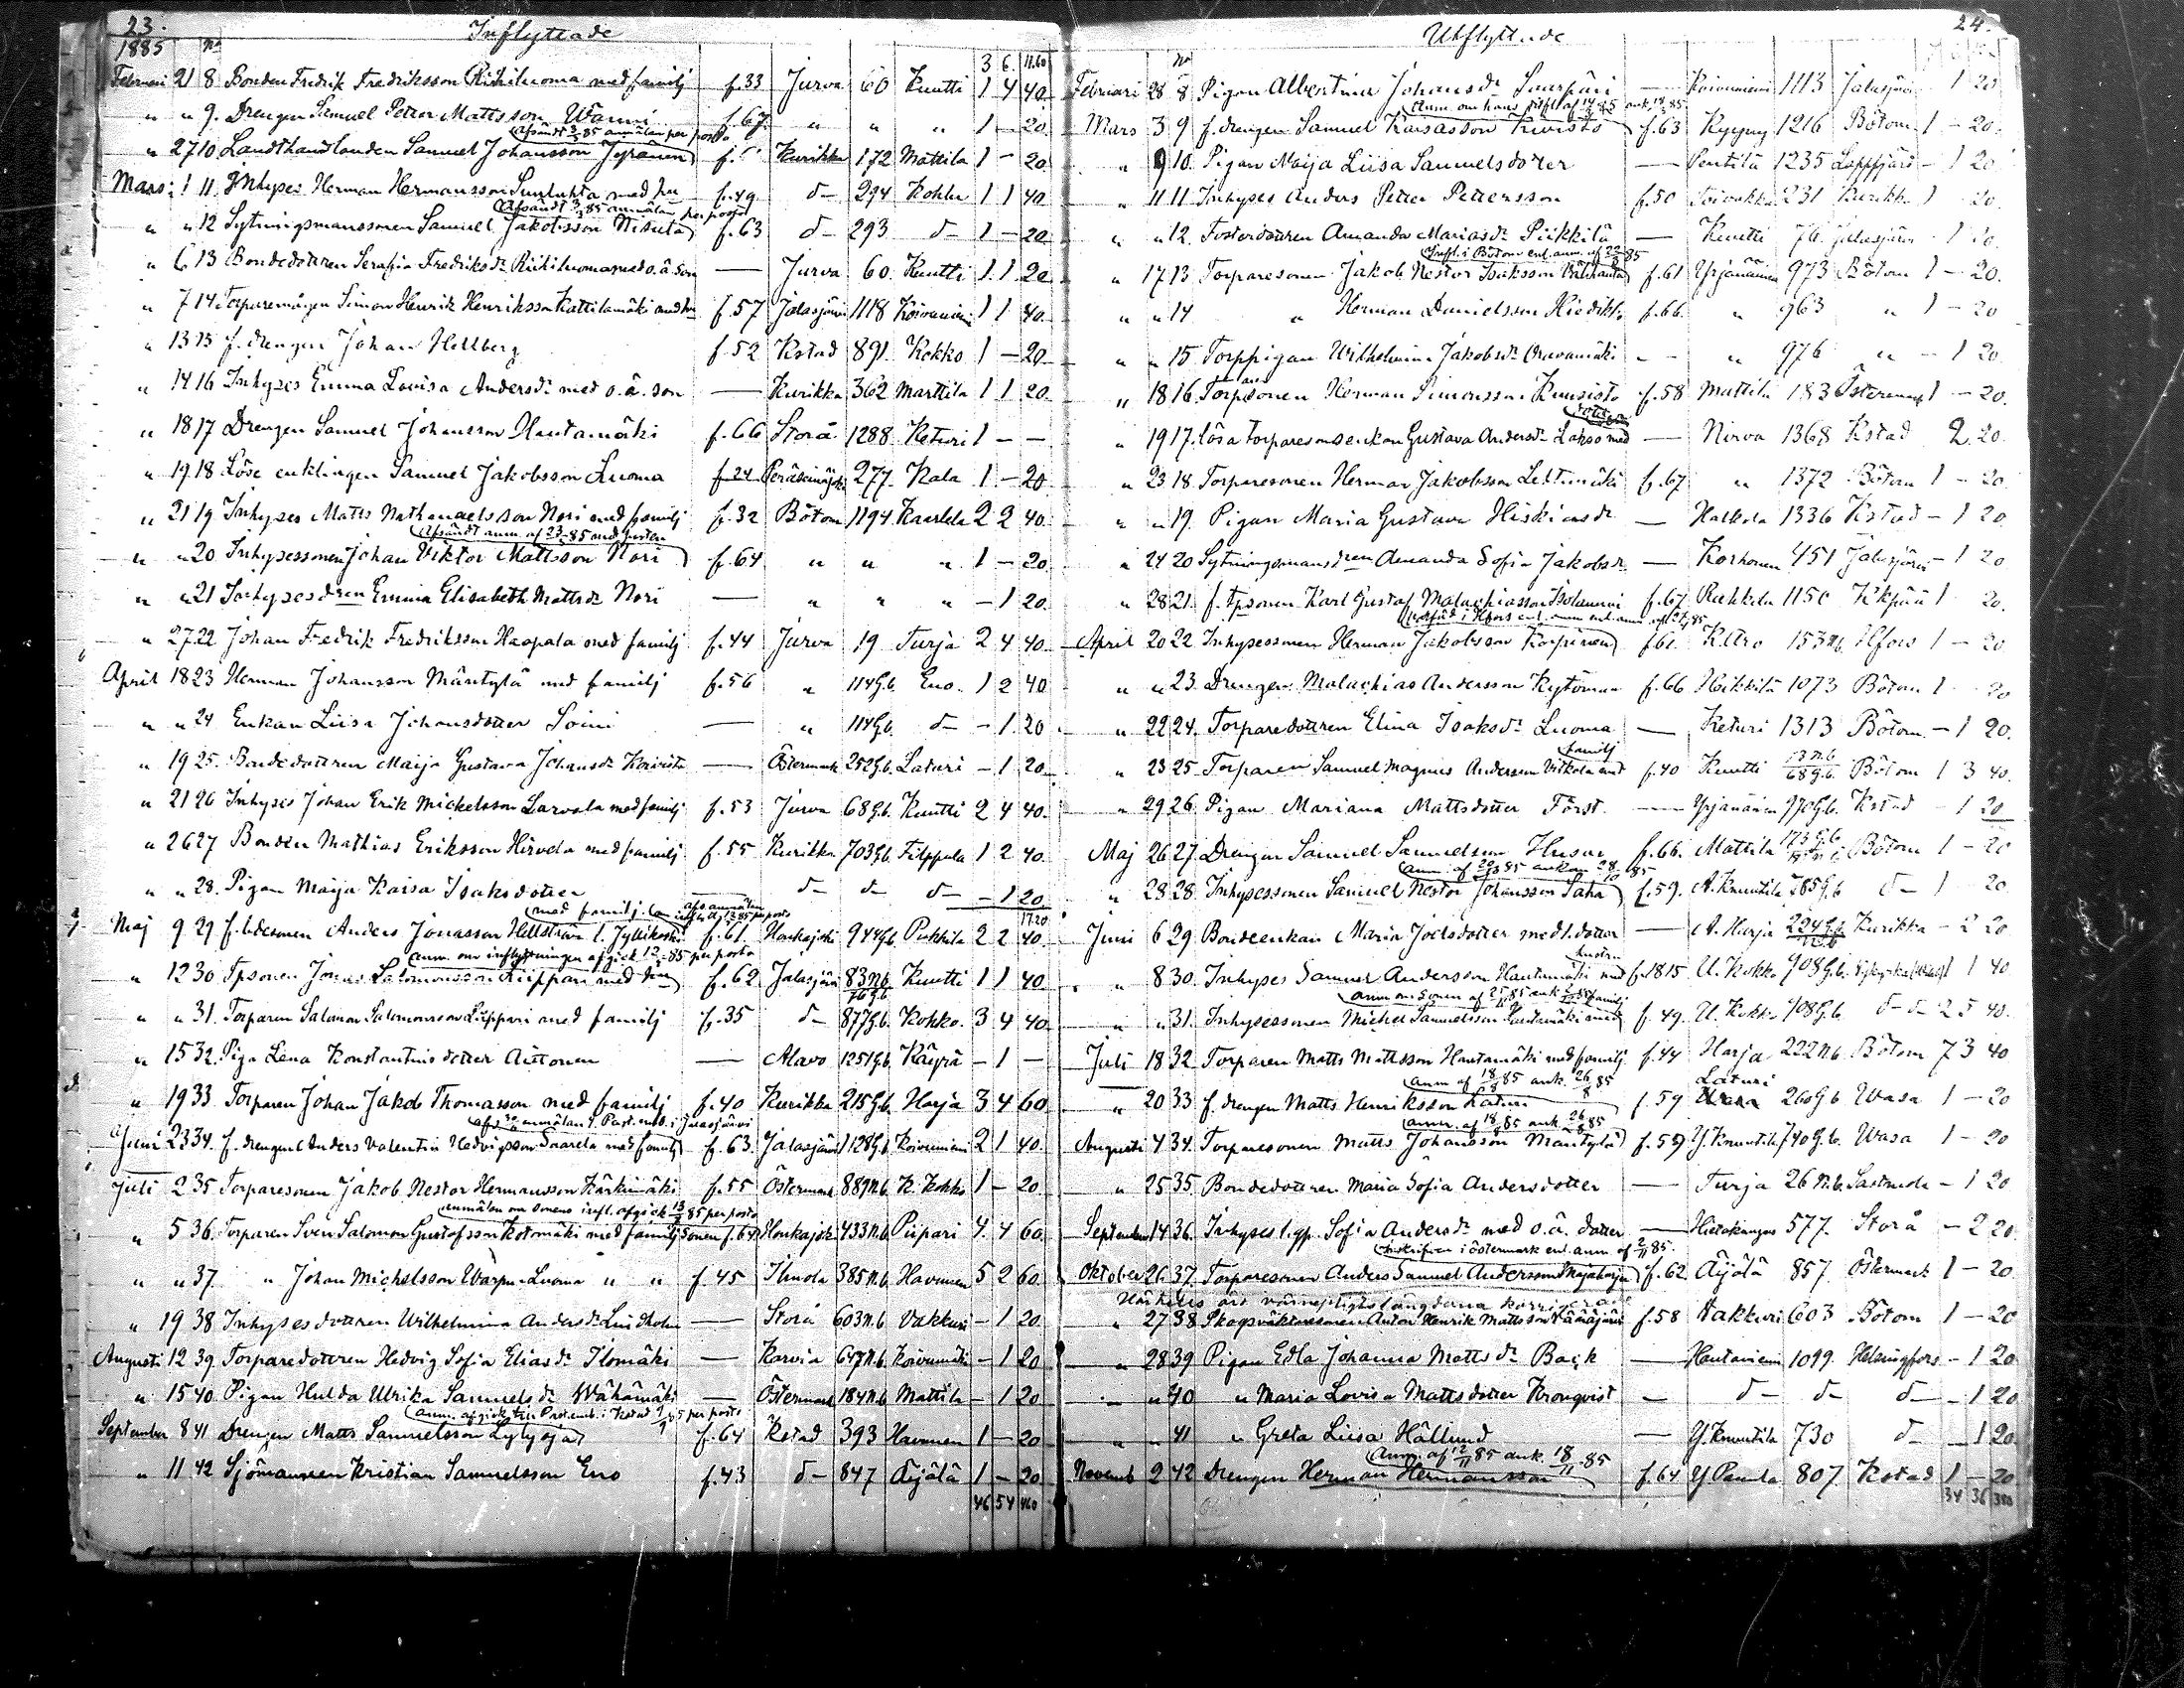 23.
Inflyttade
1885 No 3 6. 11.60
Februari 21 8 Bonden Fredrik Fredriksson Rihiluoma med familj f.33 Jurva 60 Kuutti 1 4 40.
" " 9. Drengen Samuel Petter Mattsson Wanni f.67. " " " 1 - 20.
Afsändt 3/3 85 anmälan per posto
" 27 10 Landthandlanden Samuel Johansson Jyränen Kurikka 172 Mattila 1 - 20
Mars 1 11. Inhyses Herman Hermansson med hu f.49 d- 294 Kohlu 1 1 40.
Afsändt 3/3 85 anmälan per posto
" " 12 Sytningsmanssonen Samuel Jakobsson Nisula f.63 d- 293 d- 1 - 20
" 6 13 Bondedottren Serafia Fredriksdr Rihiluoma med o.ä. son — Jurva 60. Kuutti 1. 1. 20
" 7 14 Torparemågen Simon Henrik Henriksson Kattilamäki med hu f.57 Jalasjärvi 1118 Koivuniemi 1 1 40.
" 13 15 f. drengen Johan Hellberg f.52 Kstad 891. Kokko 1 - 20
" 14 16 Inhyses Emma Lovisa Andersdr med o.ä. son — Kurikka 362 Marttila 1 1 20.
" 18 17 Drengen Samuel Johansson Hautamäki f.66 Storå 1288. Keturi 1 - -
" 19 18 Löse enklingen Samuel Jakobsson Luoma f.24 Peräseinäjoki 277. Kala 1 - 20
" 21 19 Inhyses Matts Nathanaelsson Nori med familj f.32 Bötom 1194 Kaarlela 2 2 40.
Afsändt anm. af 23/3 85 med posten
" " 20 Inhysessonen Johan Viktor Mattsson Nori f.64 " " " 1 - 20.
" " 21 Inhysesdren Emma Elisabeth Mattsdr Nori — " " " - 1 20.
" 27 22 Johan Fredrik Fredriksson Haapala med familj f.44 Jurva 19 Turja 2 4 40.
April 18 23 Herman Johansson Mäntylä med familj f.56 " 114G.b. Eno. 1 2 40
" " 24 Enkan Liisa Johansdotter Soini — " 114G.b. d- - 1. 20
" 19 25. Bondedottren Maija Gustava Johansdr Koivisto — Östermark 252G.b. Laturi - 1 20
" 21 26 Inhyses Johan Erik Mickelsson Larvala med familj f.53 Jurva 68G.b. Kuutti 2 4 40.
" 26 27 Bonden Mathias Eriksson Hirvela med familj f.55 Kurikka 703G.b. Filppula 1 2 40.
" " 28. Pigan Maija Kaisa Isaksdotter — d- d- d- - 1 20
17.20
Maj 9 29 f. Anders Jonasson Hellström l. Jyllikoski f.61 Honkajoki 944G.b. Pukkila 2 2 40.
anm. om inflyttningen afgick 12/5 85 per posto
" 12 30 Tpsonen Jonas Salomonsson Liippari med hu f.62 Jalasjärvi 83N.b. 76G.b. Kuutti 1 1 40
" " 31. Torparen Salomon Salomonsson Liippari med familj f.35 d- 877G.b. Kokko. 3 4 40
" 15 32. Piga Lena Konstantinsdotter Aittonen — Alavo 1251G.b. Käyrä - 1 -
" 19 33 Torparen Johan Jakob Thomasson med familj f.40 Kurikka 215G.b. Harja 3 4 60
anmälan t. Past. emb. i Jalasjärvi
Juni 23 34. f. drengen Anders Valentin Hedvigsson Saarela med familj f.63. Jalasjärvi 1128G.b. Koivuniemi 2 1 40.
Juli 2 35 Torparesonen Jakob Nestor Hermansson Kärkimäki f.55 Östermark 889N.b. K. Kokko 1 - 20
anmälan om sonens infl. afgick 13/7 85 per posto
" 5 36. Torparen Sven Salomon Gustafsson Kotomäki med familj Sonen f.64 Honkajoki 433N.b. Piipari 4. 4 60.
" " 37 " Johan Michelsson Warpu-Luoma " " f.45 Ilmola 385N.b. Havunen 5 2 60
" 19 38 Inhysesdottren Wilhelmina Andersdr Lindholm — Storå 603N.b. Vakkuri - 1 20.
Augusti 12 39 Torparedottren Hedvig Sofia Eliasdr Ilomäki — Karvia 647N.b. Koivumäki - 1 20
" 15 40. Pigan Hulda Ulrika Samuelsdr Wähämäki — Östermark 184N.b. Mattila - 1 20
anm. afgick till Past.emb. i Kstad 9/9 85 per posto
September 8 41 Drengen Matts Samuelsson Lylyoja f.64 Kstad 393 Havunen 1 - 20
" 11 42 Sjömannen Kristian Samuelsson Eno f.43 d- 847 Äijälä 1 - 20
46 54 460
24.
Utflyttade
No
Februari 28 8 Pigan Albertina Johansdr Saarpäri — Koivuniemi 1113 Jalasjärvi 1 20
Anm. om hans
Mars 3 9 f. drengen Samuel Kaisasson Kivistö f.63 Kyyny 1216 Bötom 1 - 20.
" 9 10. Pigan Maija Liisa Samuelsdotter — Pentilä 1235 Lappfjärd - 1 20
" 11 11 Inhyses Anders Petter Pettersson f.50 Toivakka 231 Kurikka 1 20.
" " 12. Fosterdottren Amanda Mariasdr Piikkilä — Kuutti 76. Jalasjärvi - 1 20.
Infl. i Bötom enl. anm. af 22/8 85
" 17 13 Torparesonen Jakob Nestor Isaksson f.61 Yrjänäinen 973 Bötom 1 - 20.
" " 14 " Herman Danielsson Hiedikko f.66. " 963 " 1 - 20
" " 15. Torppigan Wilhelmina Jakobsdr Oravamäki — " 976 " - 1 20.
" 18 16. Torpsonen Herman Simonsson Kuusisto f.58 Mattila 183 Östermark 1 - 20.
" 19 17. lösa torparesonsenkan Gustava Andersdr Lakso med — Nirva 1368 Kstad 2. 20.
" 23 18. Torparesonen Herman Jakobsson Lehtimäki f.67 " 1372 Bötom 1 - 20.
" " 19. Pigan Maria Gustava Hiskiasdr — Halkola 1336 Kstad - 1 20.
" 24 20 Sytningsmansdren Amanda Sofia Jakobsdr — Korhonen 451 Jalasjärvi - 1 20
" 28 21. f. tpsonen Karl Gustaf Malachiasson f.67. Ruhkala 1150 1 20.
April 20 22 Inhysessonen Herman Jakobsson Korpinen f.61. K.Uro 153N.b. Hfors 1 - 20
" " 23. Drengen Malachias Andersson Kytömaa f.66 Heikkilä 1073 Bötom 1 - 20
" 22 24. Torparedottren Elina Isaksdr Luoma — Keturi 1313 Bötom. - 1 20.
familj
" 23 25 Torparen Samuel Magnus Andersson Vitkola med f.40 Kuutti 68G.b. Bötom 1 3 40.
" 29 26. Pigan Mariana Mattsdotter Först. — Yrjänäinen 970G.b. Kstad - 1 20
Maj 26 27. Drengen Samuel Samuelsson Husar f.66. Mattila 173G.b. Bötom 1 - 20
anm. af 22/10 85 ankom 28/10 85
" 28 28. Inhysessonen Samuel Nestor Johansson Taka f.59. A.Knuutila 785G.b. d- 1 20.
Juni 6 29 Bondeenkan Maria Joelsdotter med 1. dotter — A. Harja 224G.b. Kurikka - 2 20
hustru
" 8 30. Inhyses Samuel Andersson Hautamäki med f.1815 U. Kokko 908G.b. 1 1 40
" " 31. Inhysessonen Michel Samuelsson Hautamäki med f.49. U. Kokko 908G.b. d- d- 2 5 40.
Juli 18 32 Torparen Matts Mattsson Hautamäki med familj f.44 Harja 222N.b. Bötom 7 3 40
anm af 18/8 85 ank. 26/8 85
Laturi
" 20 33 f. drengen Matts Henriksson Laturi f.59 260G.b Wasa 1 - 20
anm. af 18/8 85 ank 26/8 85
Augusti 4 34. Torparesonen Matts Johansson Mäntylä f.59 Y.Knuutila 740G.b. Wasa 1 - 20
" 25 35. Bondedottren Maria Sofia Andersdotter — Turja 26N.b. Sastmola - 1 20
September 14 36. Inhyses l.gp. Sofia Andersdr med o.ä. dotter — Hietakangas 577. Storå - 2 20
Inskrifven i Östermark enl. anm. af 2/11 85.
Oktober 26 37. Torparesonen Anders Samuel Andersson Majaharju f.62. Äijälä 857 Östermark 1 - 20
" 27 38 Skogsväktaresonen Anton Henrik Mattsson f.58 Vakkuri 603 Bötom 1 - 20
" 28 39 Pigan Edla Johanna Mattsdr Back — Hautaniemi 1099. Helsingfors - 1 20
" " 40 " Maria Lovisa Mattsdotter Kronqvist — d- d- d- - 1 20
" " 41 " Greta Liisa Hällund — Y.Knuutila 730 d- - 1 20
Anm. af 12/11 85 ank. 18/11 85
Novemb 2 42 Drengen Herman Hermansson f.64 Y Panula 807. Kstad 1 - 20
34 36 380